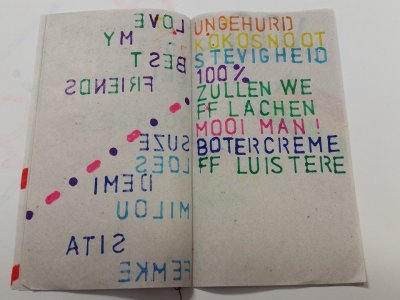 LOVE
MY
BEST
FRIENDS
SUZE
LOES
DEMI
MILOU
SITA
FEMKE
UNGEHURD
KOKOSNOOT
STEVIGHEID
100%
ZULLEN WE
FF LACHEN
MOOI MAN !
BOTERCREME
FF LUISTERE